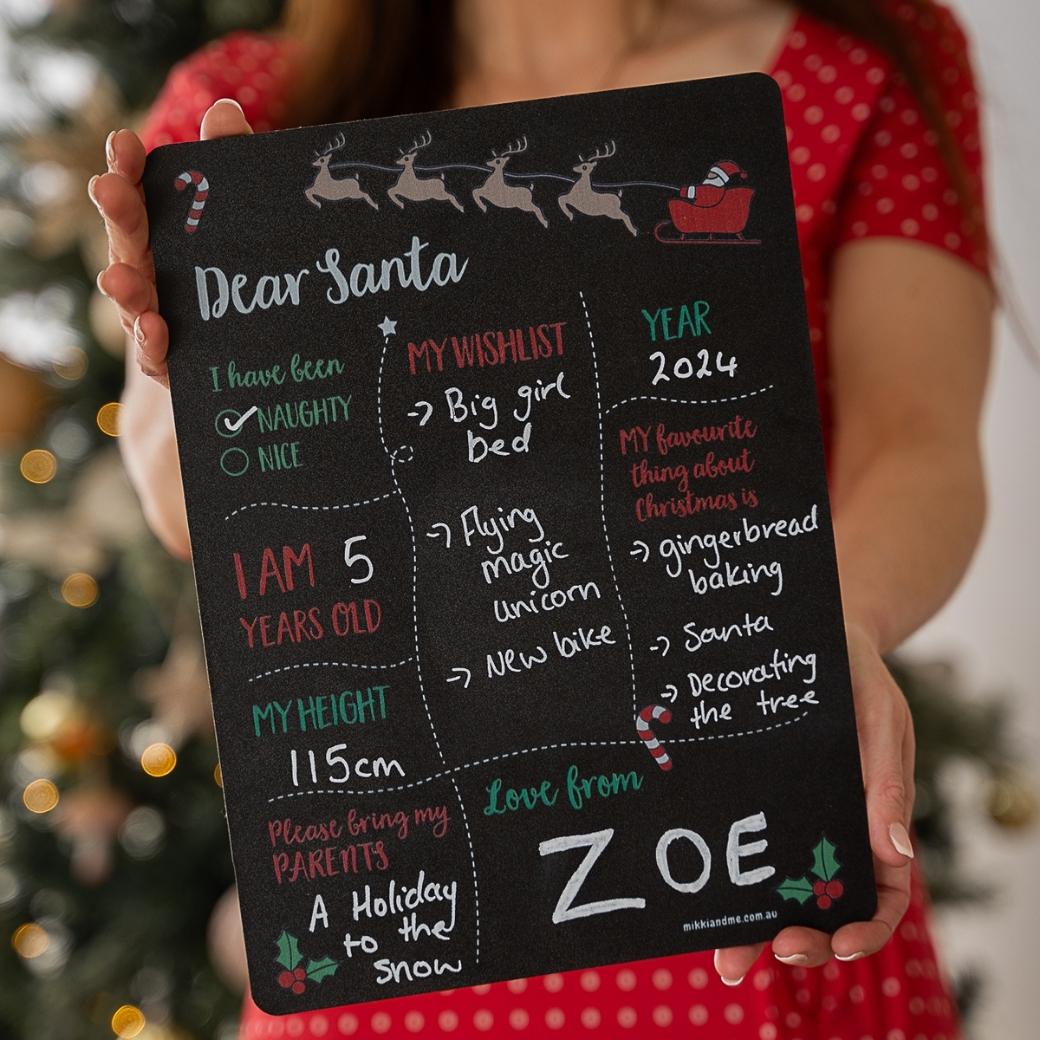 Dear Santa
I have been
NAUGHTY
NICE
I AM 5
YEARS OLD
MY HEIGHT
115cm
Please bring my
PARENTS
A Holiday
to the
snow
MY WISHLIST
→ Big girl
bed
→ Flying
magic
unicorn
→ New bike
YEAR
2024
MY favourite
thing about
Christmas is
→ gingerbread
baking
→ Santa
→ Decorating
the tree
Love from
ZOE
mikkiandme.com.au